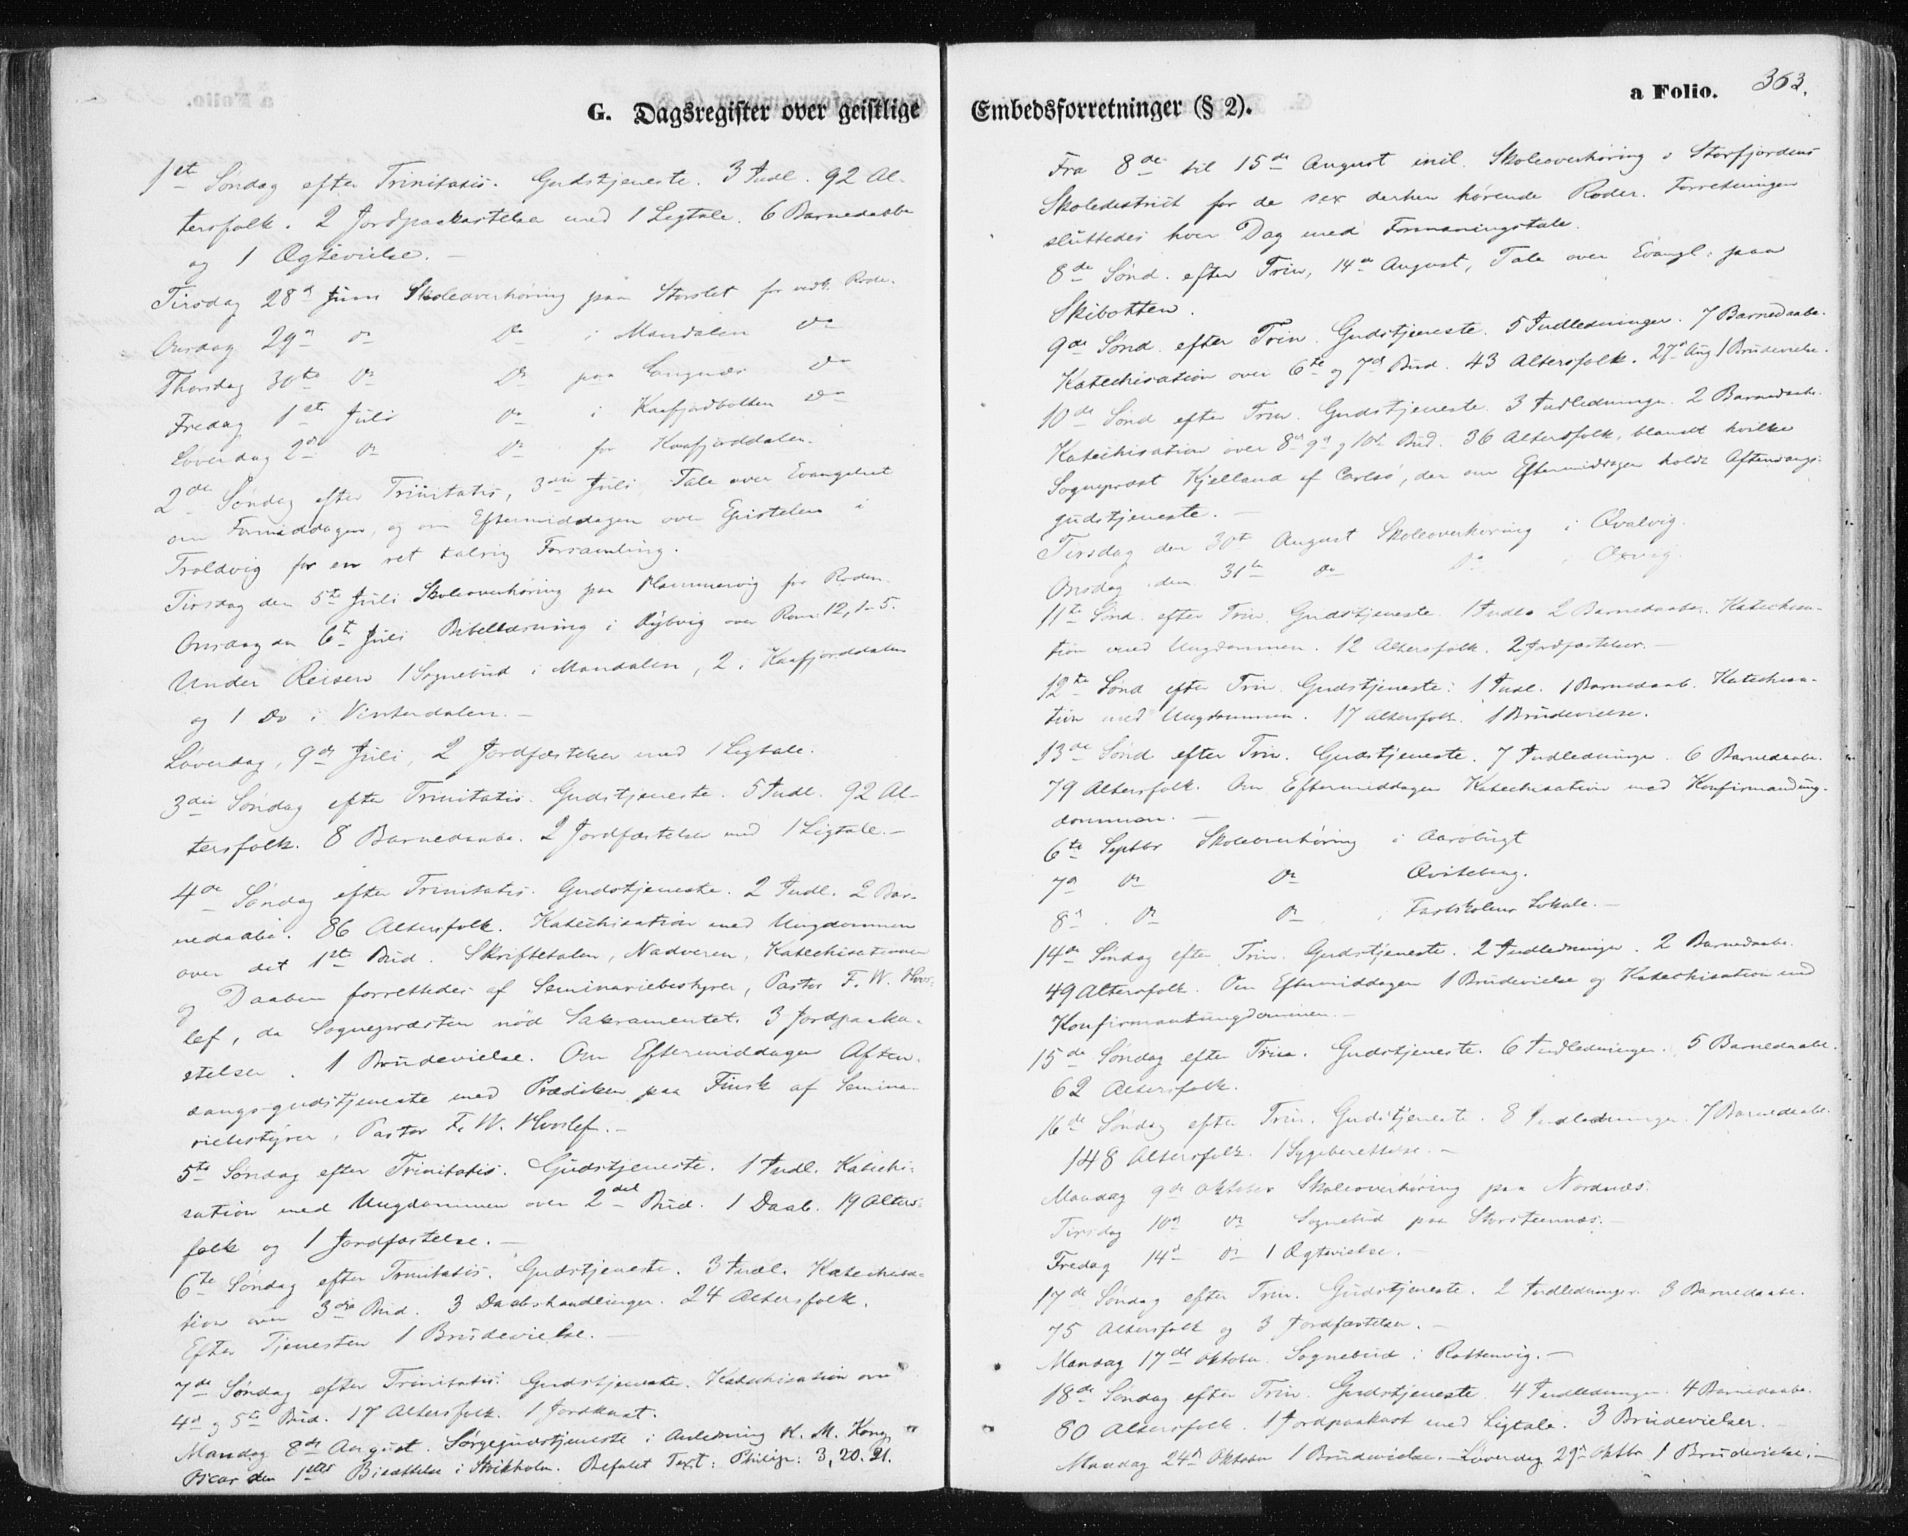 G. Dagsregister over geistlige
1ste Søndag efter Trinitatis. Gudstjeneste. 3 Indl. 92 Al-
tersfolk. 2 Jordpaakastelser med 1 Ligtale. 6 Barnedaabe
og 1 Ægtevielse. –
Tirsdag 28de Juni Skoleoverhøring paa Storslet for vedk. Rode.
Onsdag 29de Do Do i Mandalen Do
Thorsdag 30te Do Do paa Langnæs Do
Fredag 1ste Juli Do i Kaafjordbotten Do
Løverdag 2den Do Do for Kaafjorddalen.
2den Søndag efter Trinitatis, 3die Juli Tale over Evangeliet
om Formiddagen, og om Eftermiddagen over Epistelen i
Troldvig for en ret talrig Forsamling.
Tirsdag den 5te Juli Skoleoverhøring paa for Roden.
Onsdag den 6te Juli Bibellæsning i Dybvig over Rom. 12, 1-5.
Under Reisen 1 Sognebud i Mandalen, 2 i Kaafjorddalen
og 1 Do i Vinterdalen. –
Løverdag, 9de Juli, 2 Jordfæstelser med 1 Ligtale.
3die Søndag efter Trinitatis. Gudstjeneste. 5 Indl. 92 Al-
tersfolk. 8 Barnedaabe. 2 Jordfæstelser med 1 Ligtale. –
4de Søndag efter Trinitatis. Gudstjeneste. 2 Indl. 2 Bar-
nedaabe. 86 Altersfolk. Katechisation med Ungdommen
over det 1ste Bud. Skriftetalen, Nadveren, Katechisationen
og Daaben forrettedes af Seminariebestyrer, Pastor F. W. Hvos-
lef, da Sognepræsten nød Sakramentet. 3 Jordpaaka-
stelser. 1 Brudevielse. Om Eftermiddagen Aften-
sangs-gudstjeneste med Prædiken paa Finsk af Semina-
riebestyrer, Pastor F. W. Hvoslef. –
5te Søndag efter Trinitatis. Gudstjeneste. 1 Indl. Katechi-
sation med Ungdommen over 2det Bud. 1 Daab. 19 Alters-
folk og 1 Jordfæstelse. –
6te Søndag efter Trinitatis. Gudstjeneste. 3 Indl. Katechisa-
tion over 3die Bud. 3 Daabshandlinger. 24 Altersfolk.
Efter Tjenesten 1 Brudevielse. –
7de Søndag efter Trinitatis. Gudstjeneste. Katechisation over
4de og 5te Bud. 17 Altersfolk. 1 Jordkast.
Mandag 8de August. Sørgegudstjeneste i Anledning H. M. Kong
Oscar den 1stes Bisættelse i Stokholm. Befalet Text: Philip: 3, 20. 21.
Embedsforretninger (§ 2).
a Folio. 363.
Fra 8de til 15de August incl. Skoleoverhøring i Storfjordens
Skoledistrict for de sex derhen hørende Roder. Forretningen
sluttedes hver Dag med Formaningstale.
8de Sønd. efter Trin, 14de August, Tale over Evangl. paa
Skibotten.
9de Sønd. efter Trin. Gudstjeneste. 5 Indledninger. 7 Barnedaabe.
Katechisation over 6te og 7de Bud. 43 Altersfolk. 27de Aug 1 Brudevielse.
10de Sønd efter Trin. Gudstjeneste. 3 Indledninger. 2 Barnedaabe.
Katechisation over 8de 9de og 10de Bud. 36 Altersfolk, blandt hvilke
Sognepræst Kjelland af Carlsø, der om Eftermiddagen holdt Aftensangs-
gudstjeneste. –
Tirsdag den 30te August Skoleoverhøring i Qvalvig.
Onsdag den 31te Do Do i Oxvig.
11te Sønd. efter Trin. Gudstjeneste. 1 Indl. 2 Barnedaabe. Katechisa-
tion med Ungdommen. 12 Altersfolk. 2 Jordfæstelser. –
12te Sønd efter Trin. Gudstjeneste. 1 Indl. 1 Barnedaab. Katechisa-
tion med Ungdommen. 17 Altersfolk. 1 Brudevielse.
13de Sønd efter Trin. Gudstjeneste. 7 Indledninger. 6 Barnedaabe.
79 Altersfolk. Om Eftermiddagen Katechisation med Konfirmandung-
dommen. –
6te Septbr Skoleoverhøring i Aarøbugt
7de Do Do Qviteberg.
8de Do Do i Fastskolens Lokale. –
14de Søndag efter Trin. Gudstjeneste. 2 Indledninger. 2 Barnedaabe.
49 Altersfolk. Om Eftermiddagen 1 Brudevielse og Katechisation med
Konfirmantungdommen. –
15de Søndag efter Trin. Gudstjeneste. 6 Indledninger. 5 Barnedaabe.
62 Altersfolk.
16de Søndag efter Trin. Gudstjeneste. 8 Indledninger. 7 Barnedaabe.
148 Altersfolk. 1 Sygeberettelse. –
Mandag 9de Oktober Skoleoverhøring paa Nordnæs.
Tirsdag 10de Do Sognebud paa Storsteennæs. –
Fredag 14de Do 1 Ægtevielse. –
17de Søndag efter Trin. Gudstjeneste. 2 Indledninger. 3 Barnedaabe.
75 Altersfolk og 3 Jordfæstelser. –
Mandag 17de Oktober. Sognebud i Rottenvig. –
18de Søndag efter Trin. Gudstjeneste. 4 Indledninger. 4 Barnedaabe.
80 Altersfolk. 1 Jordpaakast med Ligtale. 3 Brudevielser. –
Mandag 24de Oktober 1 Brudevielse. – Løverdag 29de Oktbr 1 Brudevielse. –